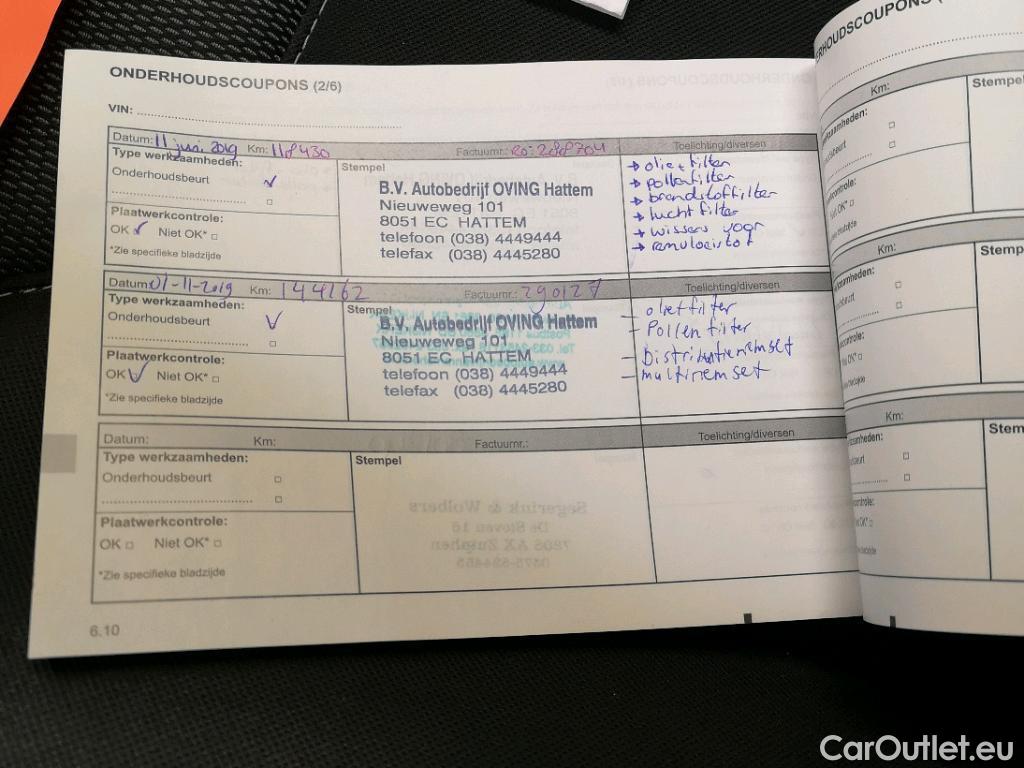 ONDERHOUDSCOUPONS (2/6)
VIN:
Datum: 11 juni 2019 Km: 118430 Factuurnr.: Ro: 288704 Toelichting/diversen
Type werkzaamheden:
Onderhoudsbeurt
Plaatwerkcontrole:
OK Niet OK*
*Zie specifieke bladzijde
Stempel
B.V. Autobedrijf OVING Hattem
Nieuweweg 101
8051 EC HATTEM
telefoon (038) 4449444
telefax (038) 4445280
→ olie + filter
→ pollenfilter
→ brandstoffilter
→ luchtfilter
→ wissers voor
→ remvloeistof
Datum: 01-11-2019 Km: 144162 Factuurnr.: 290127 Toelichting/diversen
Type werkzaamheden:
Onderhoudsbeurt
Plaatwerkcontrole:
OK Niet OK*
*Zie specifieke bladzijde
Stempel
B.V. Autobedrijf OVING Hattem
Nieuweweg 101
8051 EC HATTEM
telefoon (038) 4449444
telefax (038) 4445280
- olietfilter
- Pollen filter
- Distributieriemset
- multiriemset
Datum: Km: Factuurnr.: Toelichting/diversen
Type werkzaamheden:
Onderhoudsbeurt
Plaatwerkcontrole:
OK Niet OK*
*Zie specifieke bladzijde
Stempel
6.10
Km:
Stempel
Km:
Km:
CarOutlet.eu